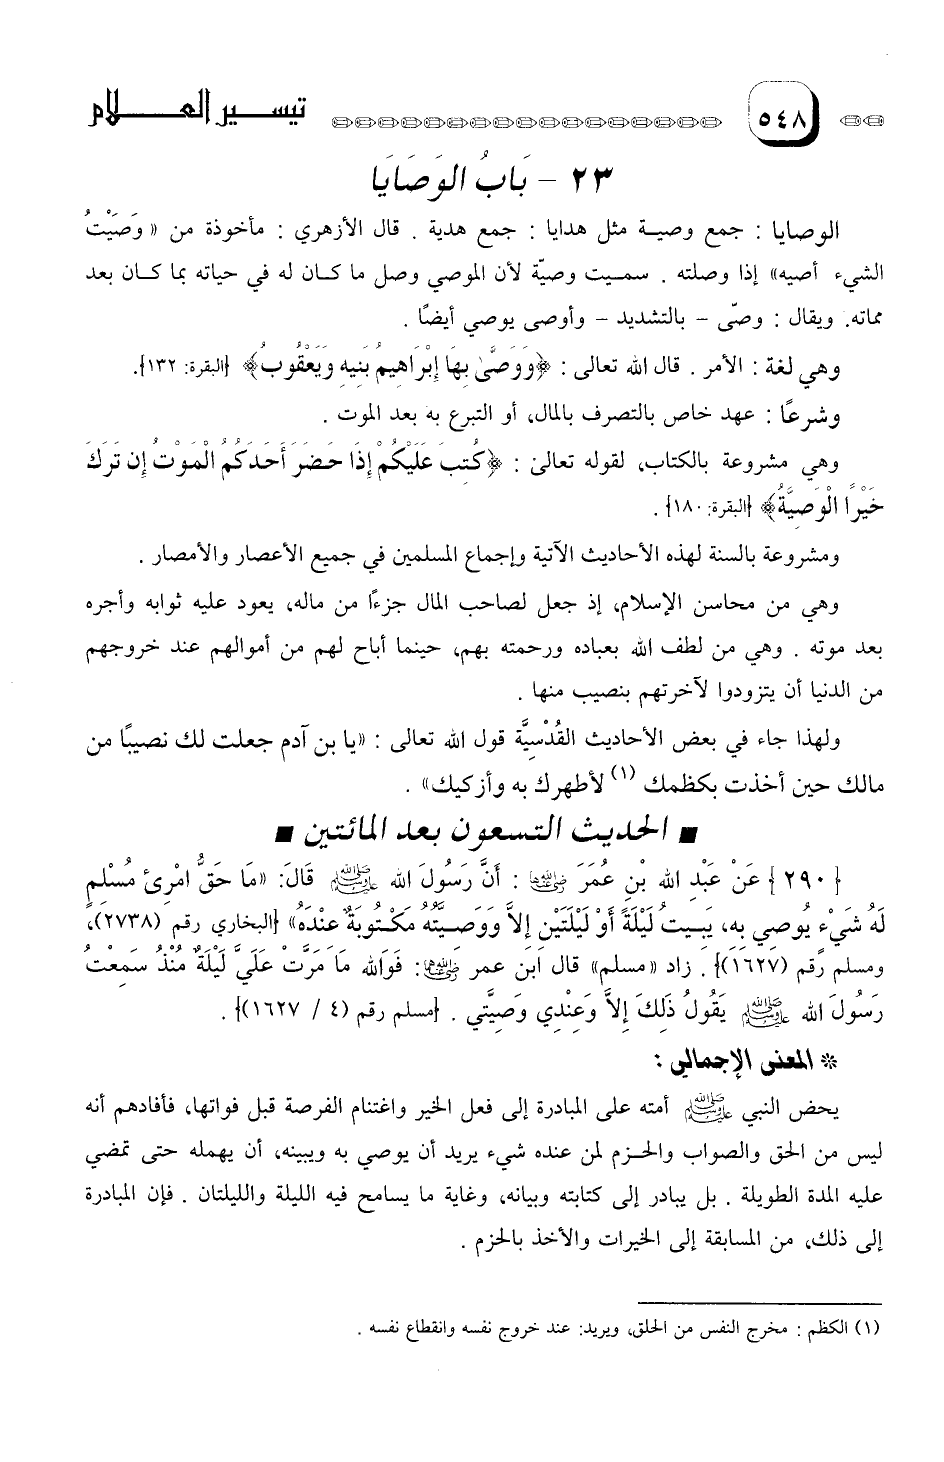 تيسير العلام
٥٤٨
٢٣ - بَابُ الوَصَايَا
الوصايا : جمع وصية مثل هدايا : جمع هدية . قال الأزهري : مأخوذة من « وَصَيْتُ
الشيء أصيه» إذا وصلته . سميت وصيّة لأن الموصي وصل ما كان له في حياته بما كان بعد
مماته. ويقال : وصّى - بالتشديد - وأوصى يوصي أيضًا .
وهي لغة : الأمر . قال الله تعالى : ﴿وَوَصَّىٰ بِهَا إِبْرَاهِيمُ بَنِيهِ وَيَعْقُوبُ﴾ {البقرة: ١٣٢}.
وشرعًا : عهد خاص بالتصرف بالمال، أو التبرع به بعد الموت .
وهي مشروعة بالكتاب، لقوله تعالىٰ : ﴿كُتِبَ عَلَيْكُمْ إِذَا حَضَرَ أَحَدَكُمُ الْمَوْتُ إِن تَرَكَ
خَيْرًا الْوَصِيَّةُ﴾ {البقرة: ١٨٠} .
ومشروعة بالسنة لهذه الأحاديث الآتية وإجماع المسلمين في جميع الأعصار والأمصار .
وهي من محاسن الإسلام، إذ جعل لصاحب المال جزءًا من ماله، يعود عليه ثوابه وأجره
بعد موته . وهي من لطف الله بعباده ورحمته بهم، حينما أباح لهم من أموالهم عند خروجهم
من الدنيا أن يتزودوا لآخرتهم بنصيب منها .
ولهذا جاء في بعض الأحاديث القُدْسِيَّة قول الله تعالى : «يا بن آدم جعلت لك نصيبًا من
مالك حين أخذت بكظمك (١) لأطهرك به وأزكيك» .
■ الحديث التسعون بعد المائتين ■
{٢٩٠} عَنْ عَبْدِ الله بْنِ عُمَرَ رضي الله عنهما : أَنَّ رَسُولَ الله ﷺ قَالَ: «مَا حَقُّ امْرِئٍ مُسْلِمٍ
لَهُ شَيْءٌ يُوصِي بِهِ، يَبِيتُ لَيْلَةً أَوْ لَيْلَتَيْنِ إِلاَّ وَوَصِيَّتُهُ مَكْتُوبَةٌ عِنْدَهُ» {البخاري رقم (٢٧٣٨)،
ومسلم رقم (١٦٢٧)} . زاد «مسلم» قال ابن عمر رضي الله عنهما: فَوَالله مَا مَرَّتْ عَلَيَّ لَيْلَةٌ مُنْذُ سَمِعْتُ
رَسُولَ الله ﷺ يَقُولُ ذَلِكَ إِلاَّ وَعِنْدِي وَصِيَّتِي . {مسلم رقم (٤ / ١٦٢٧)} .
* المعنى الإجمالي :
يحض النبي ﷺ أمته على المبادرة إلى فعل الخير واغتنام الفرصة قبل فواتها، فأفادهم أنه
ليس من الحق والصواب والحزم لمن عنده شيء يريد أن يوصي به ويبينه، أن يهمله حتى تمضي
عليه المدة الطويلة . بل يبادر إلى كتابته وبيانه، وغاية ما يسامح فيه الليلة والليلتان . فإن المبادرة
إلى ذلك، من المسابقة إلى الخيرات والأخذ بالحزم .
(١) الكظم : مخرج النفس من الحلق، ويريد: عند خروج نفسه وانقطاع نفسه .